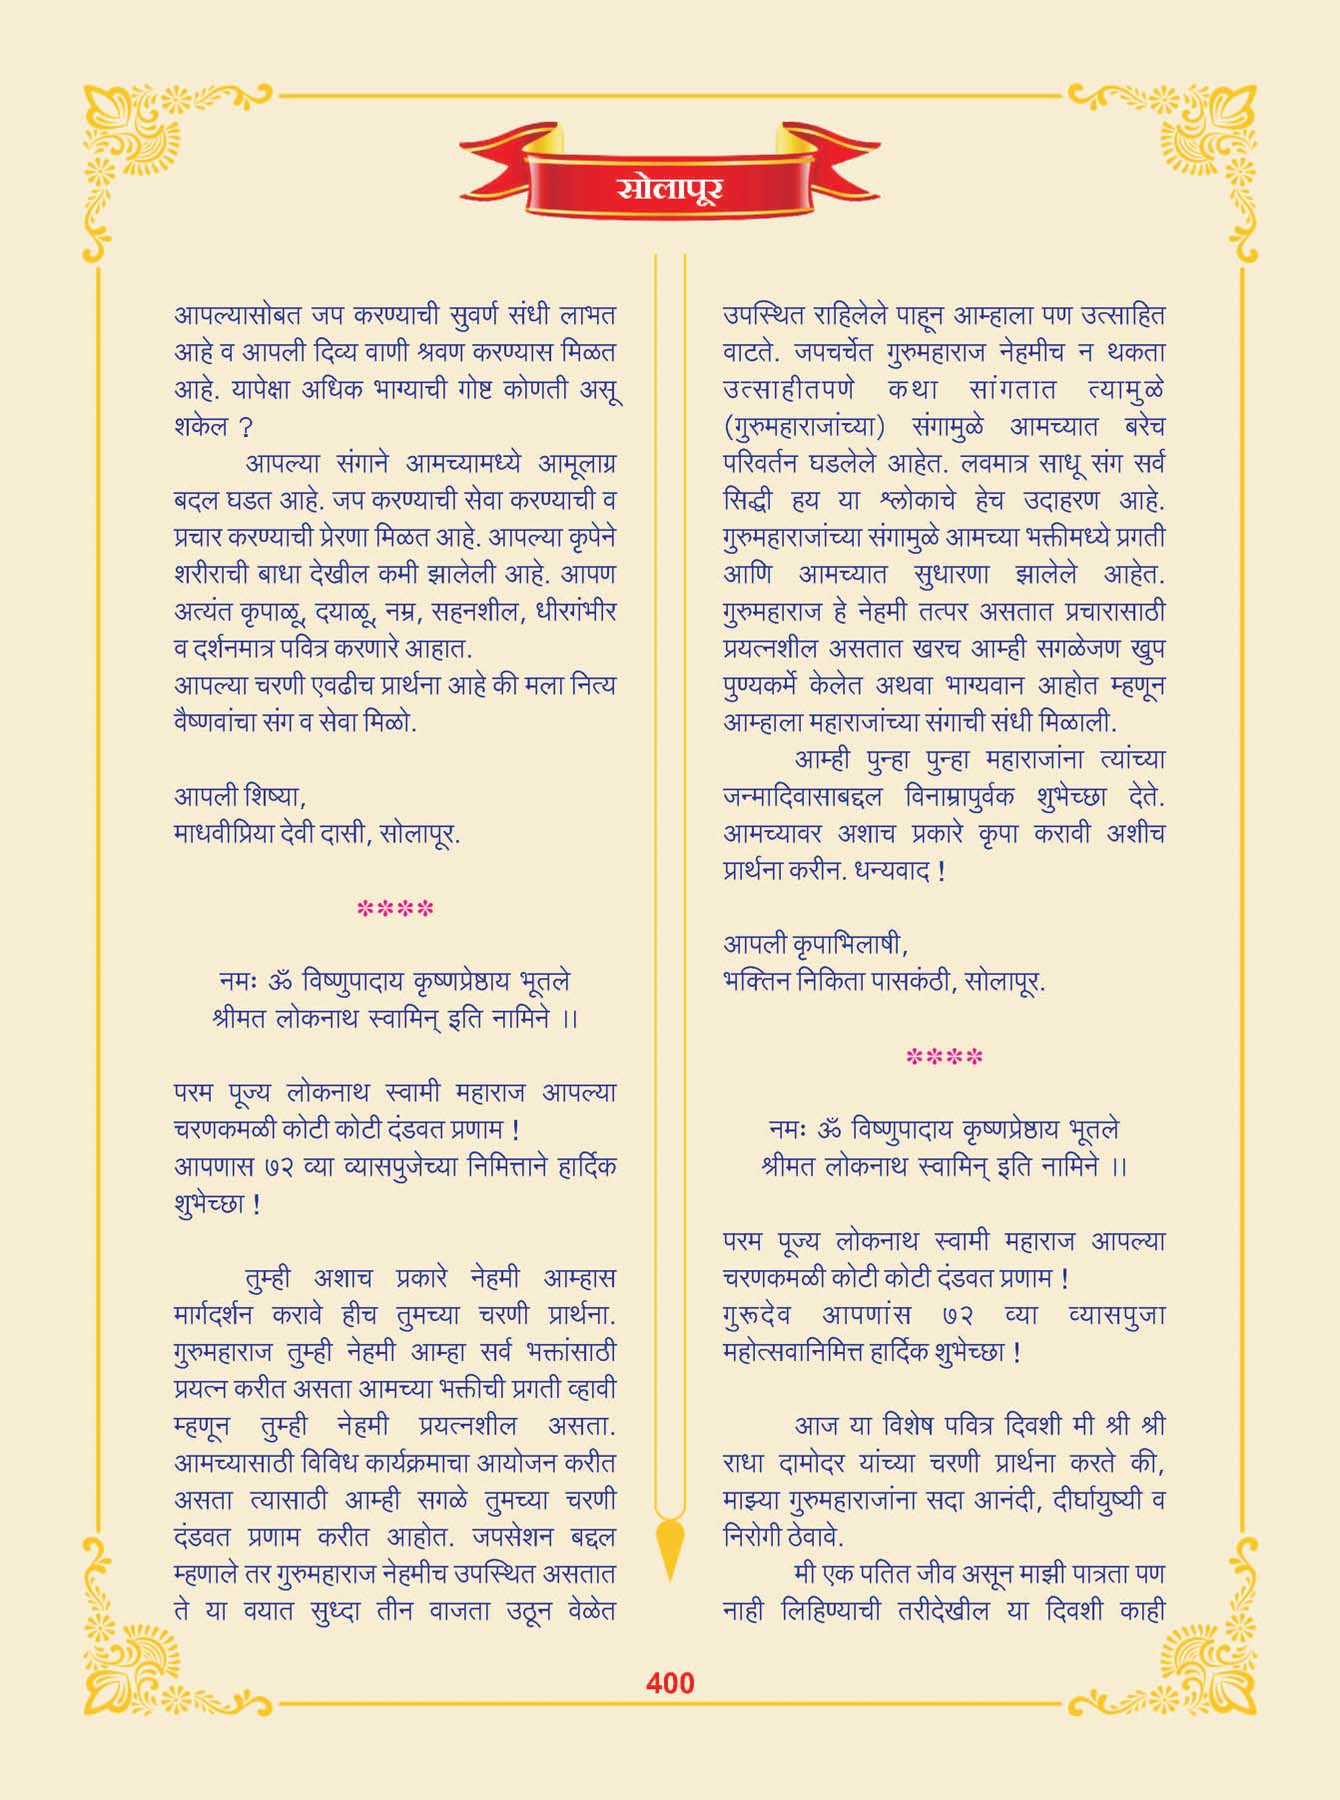 सोलापूर
आपल्यासोबत जप करण्याची सुवर्ण संधी लाभत
आहे व आपली दिव्य वाणी श्रवण करण्यास मिळत
आहे. यापेक्षा अधिक भाग्याची गोष्ट कोणती असू
शकेल ?
आपल्या संगाने आमच्यामध्ये आमूलाग्र
बदल घडत आहे. जप करण्याची सेवा करण्याची व
प्रचार करण्याची प्रेरणा मिळत आहे. आपल्या कृपेने
शरीराची बाधा देखील कमी झालेली आहे. आपण
अत्यंत कृपाळू, दयाळू, नम्र, सहनशील, धीरगंभीर
व दर्शनमात्र पवित्र करणारे आहात.
आपल्या चरणी एवढीच प्रार्थना आहे की मला नित्य
वैष्णवांचा संग व सेवा मिळो.
आपली शिष्या,
माधवीप्रिया देवी दासी, सोलापूर.
****
नमः ॐ विष्णुपादाय कृष्णप्रेष्ठाय भूतले
श्रीमत लोकनाथ स्वामिन् इति नामिने ।।
परम पूज्य लोकनाथ स्वामी महाराज आपल्या
चरणकमळी कोटी कोटी दंडवत प्रणाम !
आपणास ७२ व्या व्यासपुजेच्या निमित्ताने हार्दिक
शुभेच्छा !
तुम्ही अशाच प्रकारे नेहमी आम्हास
मार्गदर्शन करावे हीच तुमच्या चरणी प्रार्थना.
गुरुमहाराज तुम्ही नेहमी आम्हा सर्व भक्तांसाठी
प्रयत्न करीत असता आमच्या भक्तीची प्रगती व्हावी
म्हणून तुम्ही नेहमी प्रयत्नशील असता.
आमच्यासाठी विविध कार्यक्रमाचा आयोजन करीत
असता त्यासाठी आम्ही सगळे तुमच्या चरणी
दंडवत प्रणाम करीत आहोत. जपसेशन बद्दल
म्हणाले तर गुरुमहाराज नेहमीच उपस्थित असतात
ते या वयात सुध्दा तीन वाजता उठून वेळेत
उपस्थित राहिलेले पाहून आम्हाला पण उत्साहित
वाटते. जपचर्चेत गुरुमहाराज नेहमीच न थकता
उत्साहीतपणे कथा सांगतात त्यामुळे
(गुरुमहाराजांच्या) संगामुळे आमच्यात बरेच
परिवर्तन घडलेले आहेत. लवमात्र साधू संग सर्व
सिद्धी हय या श्लोकाचे हेच उदाहरण आहे.
गुरुमहाराजांच्या संगामुळे आमच्या भक्तीमध्ये प्रगती
आणि आमच्यात सुधारणा झालेले आहेत.
गुरुमहाराज हे नेहमी तत्पर असतात प्रचारासाठी
प्रयत्नशील असतात खरच आम्ही सगळेजण खुप
पुण्यकर्मे केलेत अथवा भाग्यवान आहोत म्हणून
आम्हाला महाराजांच्या संगाची संधी मिळाली.
आम्ही पुन्हा पुन्हा महाराजांना त्यांच्या
जन्मादिवासाबद्दल विनाम्रापुर्वक शुभेच्छा देते.
आमच्यावर अशाच प्रकारे कृपा करावी अशीच
प्रार्थना करीन. धन्यवाद !
आपली कृपाभिलाषी,
भक्तिन निकिता पासकंठी, सोलापूर.
****
नमः ॐ विष्णुपादाय कृष्णप्रेष्ठाय भूतले
श्रीमत लोकनाथ स्वामिन् इति नामिने ।।
परम पूज्य लोकनाथ स्वामी महाराज आपल्या
चरणकमळी कोटी कोटी दंडवत प्रणाम !
गुरूदेव आपणांस ७२ व्या व्यासपुजा
महोत्सवानिमित्त हार्दिक शुभेच्छा !
आज या विशेष पवित्र दिवशी मी श्री श्री
राधा दामोदर यांच्या चरणी प्रार्थना करते की,
माझ्या गुरुमहाराजांना सदा आनंदी, दीर्घायुष्यी व
निरोगी ठेवावे.
मी एक पतित जीव असून माझी पात्रता पण
नाही लिहिण्याची तरीदेखील या दिवशी काही
400